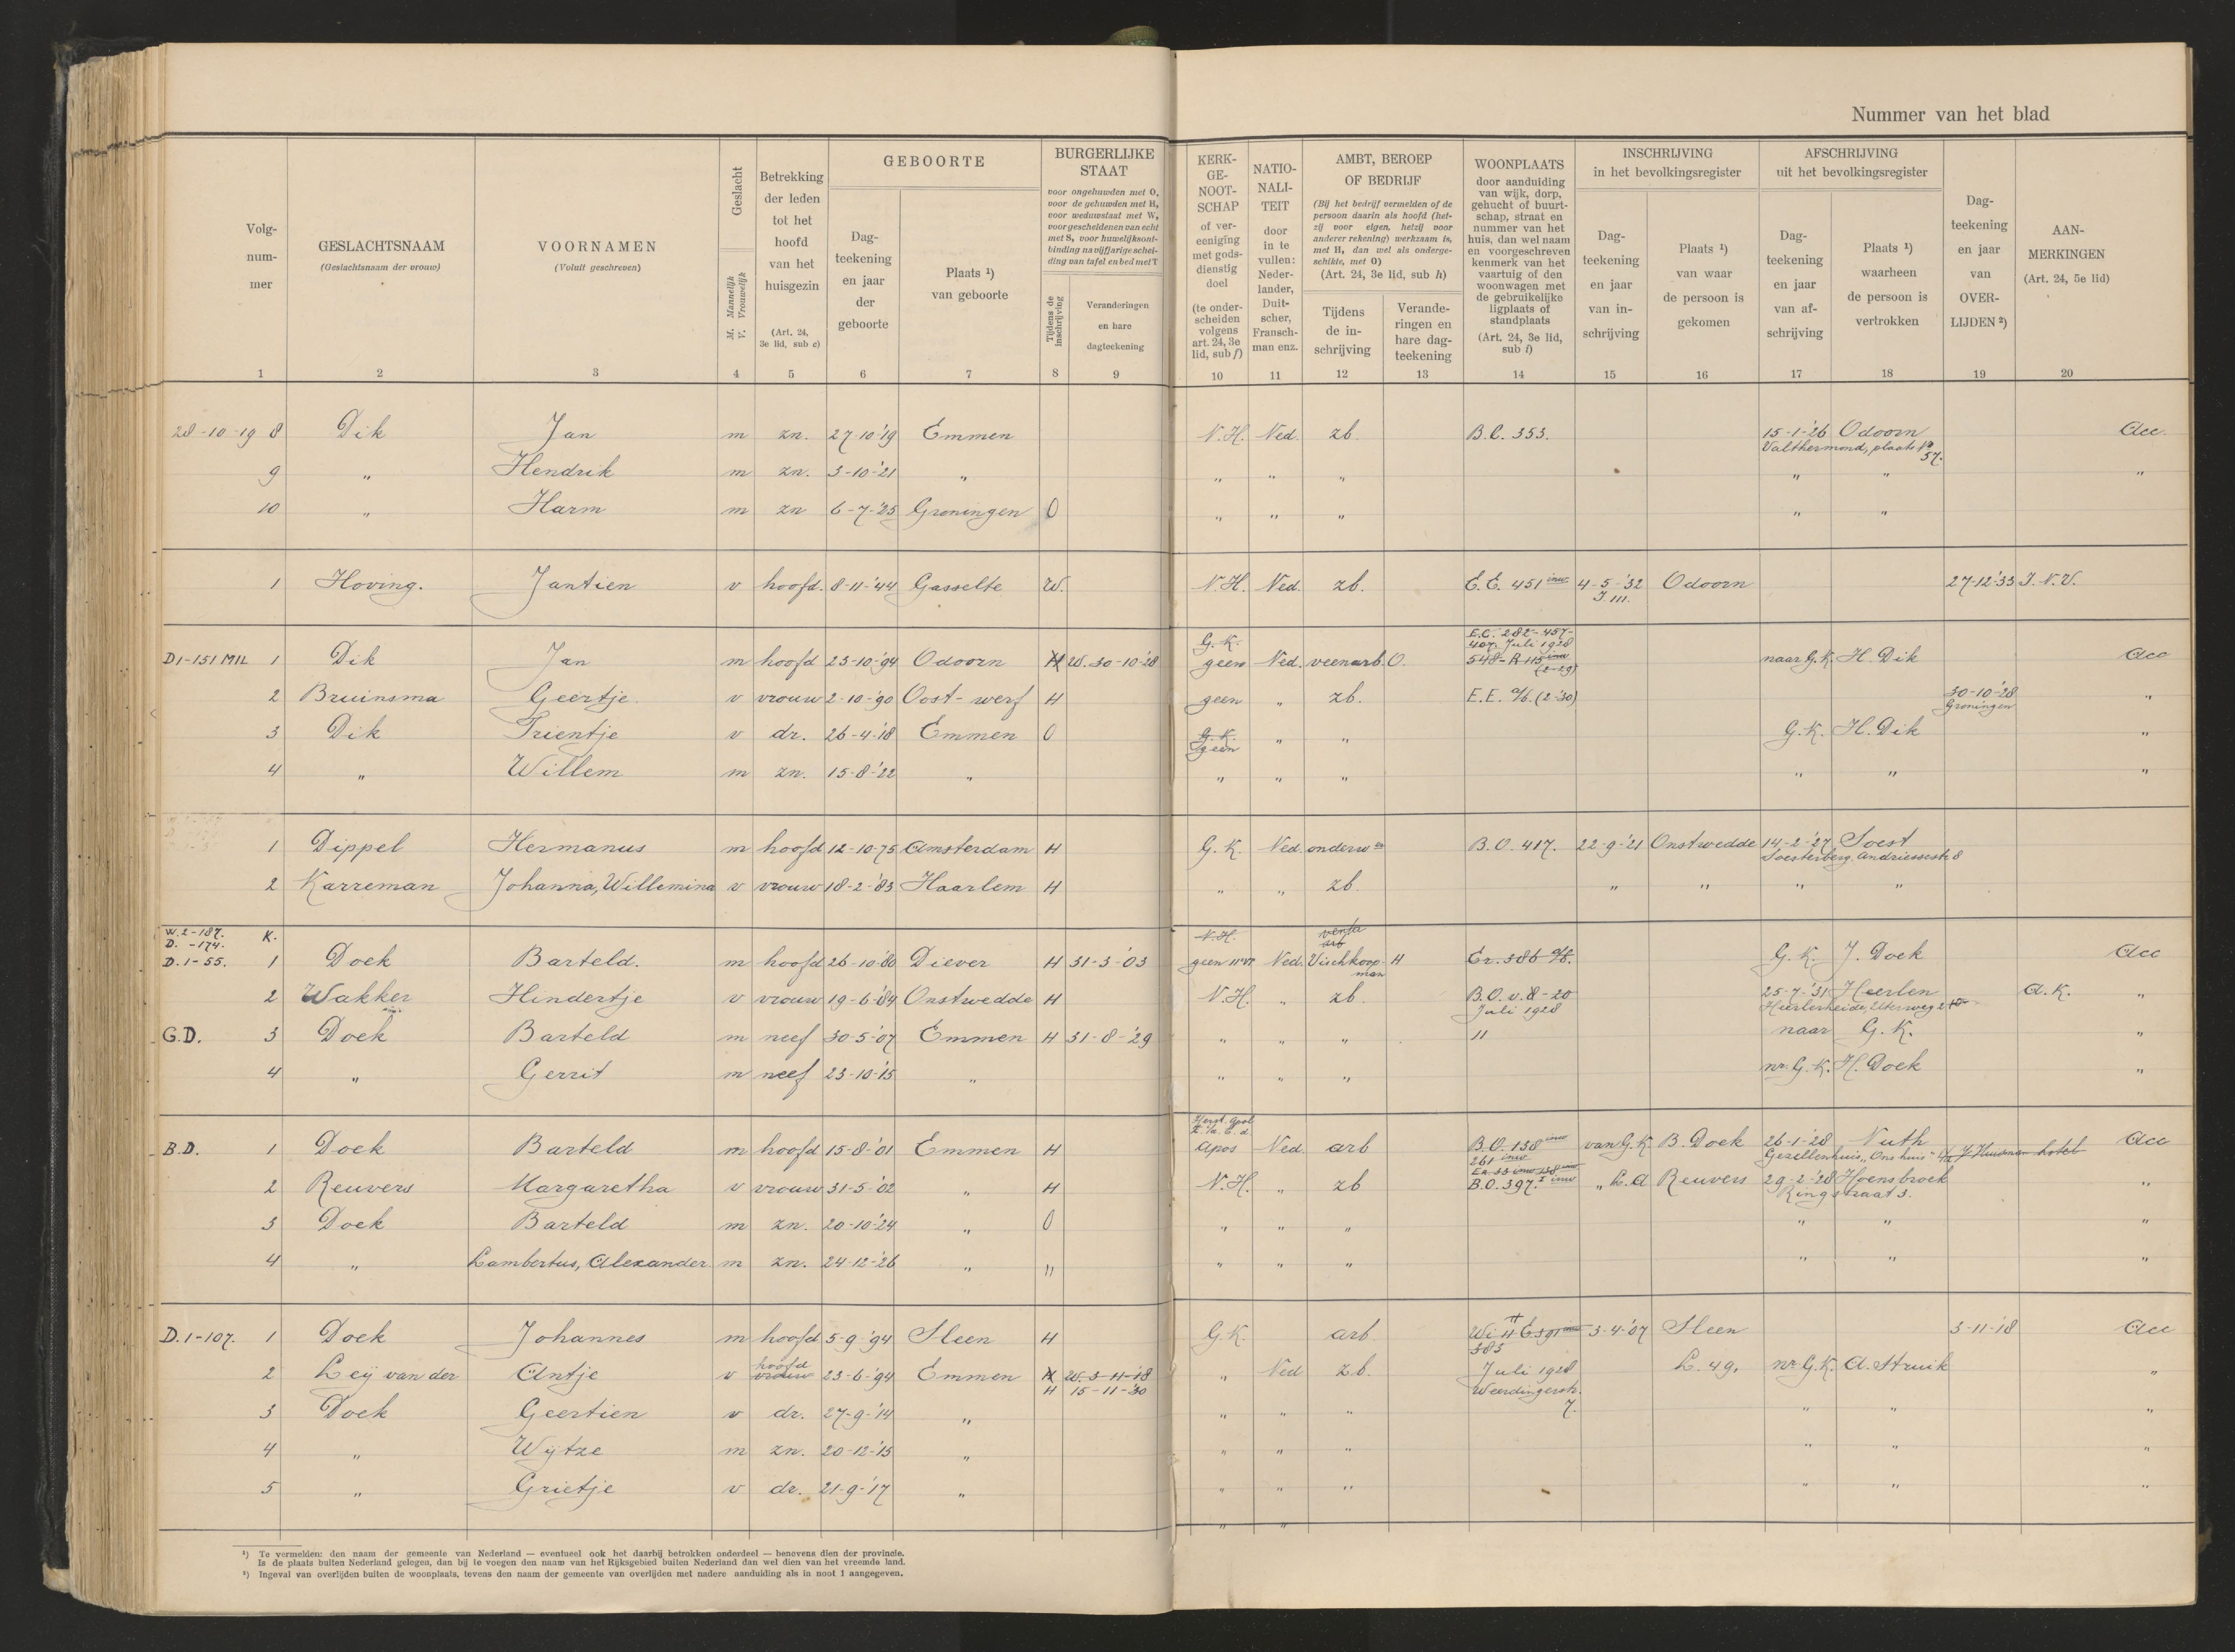 Nummer van het blad
Volg-
num-
mer
1
GESLACHTSNAAM
(Geslachtsnaam der vrouw)
2
VOORNAMEN
(Voluit geschreven)
3
Geslacht
M. Mannelijk
V. Vrouwelijk
4
Betrekking
der leden
tot het
hoofd
van het
huisgezin
(Art. 24,
3e lid, sub c)
5
GEBOORTE
Dag-
teekening
en jaar
der
geboorte
6
Plaats ¹)
van geboorte
7
BURGERLIJKE
STAAT
voor ongehuwden met O,
voor de gehuwden met H,
voor weduwstaat met W,
voor gescheidenen van echt
met S, voor huwelijksont-
binding na vijfjarige schei-
ding van tafel en bed met T
Tijdens de
inschrijving
8
Veranderingen
en hare
dagteekening
9
KERK-
GE-
NOOT-
SCHAP
of ver-
eeniging
met gods-
dienstig
doel
(te onder-
scheiden
volgens
art. 24, 3e
lid, sub f)
10
NATIO-
NALI-
TEIT
door
in te
vullen:
Neder-
lander,
Duit-
scher,
Fransch-
man enz.
11
AMBT, BEROEP
OF BEDRIJF
(Bij het bedrijf vermelden of de
persoon daarin als hoofd (het-
zij voor eigen, hetzij voor
anderer rekening) werkzaam is,
met H, dan wel als onderge-
schikte, met O)
(Art. 24, 3e lid, sub h)
Tijdens
de in-
schrijving
12
Verande-
ringen en
hare dag-
teekening
13
WOONPLAATS
door aanduiding
van wijk, dorp,
gehucht of buurt-
schap, straat en
nummer van het
huis, dan wel naam
en voorgeschreven
kenmerk van het
vaartuig of den
woonwagen met
de gebruikelijke
ligplaats of
standplaats
(Art. 24, 3e lid,
sub i)
14
INSCHRIJVING
in het bevolkingsregister
Dag-
teekening
en jaar
van in-
schrijving
15
Plaats ¹)
van waar
de persoon is
gekomen
16
AFSCHRIJVING
uit het bevolkingsregister
Dag-
teekening
en jaar
van af-
schrijving
17
Plaats ¹)
waarheen
de persoon is
vertrokken
18
Dag-
teekening
en jaar
van
OVER-
LIJDEN ²)
19
AAN-
MERKINGEN
(Art. 24, 5e lid)
20
28-10-19 8 Dik Jan m zn. 27-10-'19 Emmen N.H. Ned. zb. B.C. 353. 15-1-'26 Odoorn Acc.
Valthermond, plaats 1a
57.
9 " Hendrik m zn. 3-10-'21 " " " " " " "
10 " Harm m zn 6-7-'25 Groningen O " " " " "
1 Hoving. Jantien v hoofd. 8-11-'44 Gasselte W. N.H. Ned. zb. E.E. 451 inw 4-5-'32 Odoorn 27-12-'33 J.N.V.
J.III.
E.C. 282-457-
G.K. 407. Juli 1928
D1-151 MIL 1 Dik Jan m hoofd 23-10-'94 Odoorn H W. 30-10-'28 geen Ned. veenarb. O. 548-R 115 inw naar G.K. H. Dik Acc
(2-29)
2 Bruinsma Geertje v vrouw 2-10-'90 Oost-werf H geen " zb. E.E. a/b. (2-'30) 30-10-'28 "
Groningen
3 Dik Trientje v dr. 26-4-'18 Emmen O G.K. " " G.K. H. Dik "
geen
4 " Willem m zn. 15-8-'22 " " " " " " "
1 Dippel Hermanus m hoofd 12-10-75 Amsterdam H G.K. Ned. onderwer B.O. 417. 22-9-'21 Onstwedde 14-2-'27 Soest
Soesterberg, Andriessestr. 8
2 Karreman Johanna, Willemina v vrouw 18-2-'83 Haarlem H " " zb. " " " "
W.2-187. K. N.H.
D. -174. arb
D.1-55. 1 Doek Barteld. m hoofd 26-10-'80 Diever H 31-3-'03 geen Ned. Vischkoop- H Er. 386 a/b. G.K. J. Doek Acc
man
2 Wakker Hindertje v vrouw 19-6-'84 Onstwedde H N.H. " zb. B.O. v. 8-20 25-7-'31 Heerlen A.K. "
Juli 1928
G.D. 3 Doek Barteld m neef 30-5-'07 Emmen H 31-8-'29 " " " " naar G.K. "
4 " Gerrit m neef 23-10-'15 " " " " nr. G.K. H. Doek "
Herst. Apost.
B.D. 1 Doek Barteld m hoofd 15-8-'01 Emmen H apos Ned. arb B.O. 138 inw van G.K. B. Doek 26-1-'28 Nuth Acc
261 inw Gezellenhuis "Ons huis" hotel
2 Reuvers Margaretha v vrouw 31-5-'02 " H N.H. " zb B.O. 397. I inw " L.A Reuvers 29-2-'28 Hoensbroek "
Ringstraat 3.
3 Doek Barteld m zn. 20-10-'24 " O " " " " " "
4 " Lambertus, Alexander m zn. 24-12-'26 " " " " " " " "
D.1-107. 1 Doek Johannes m hoofd 5-9-'94 Sleen H G.K. arb 3-4-'07 Sleen 3-11-'18 Acc
383
hoofd
2 Leij van der Antje v vrouw 23-6-'94 Emmen H W. 3-11-'18 " Ned zb. Juli 1928 L. 49, nr. G.K. A. Struik "
H 15-11-'30 Weerdingerstr.
7.
3 Doek Geertien v dr. 27-9-'14 " " " " " " "
4 " Wytze m zn. 20-12-'15 " " " " " " "
5 " Grietje v dr. 21-9-'17 " " " " " " "
" "
¹) Te vermelden: den naam der gemeente van Nederland — eventueel ook het daarbij betrokken onderdeel — benevens dien der provincie.
Is de plaats buiten Nederland gelegen, dan bij te voegen den naam van het Rijksgebied buiten Nederland dan wel dien van het vreemde land.
²) Ingeval van overlijden buiten de woonplaats, tevens den naam der gemeente van overlijden met nadere aanduiding als in noot 1 aangegeven.